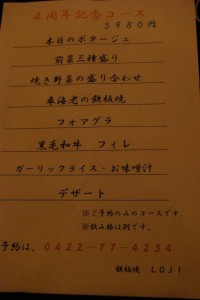 4周年記念コース
5980円
本日のポタージュ
前菜三種盛り
焼き野菜の盛り合わせ
車海老の鉄板焼
フォアグラ
黒毛和牛 フィレ
ガーリックライス・お味噌汁
デザート
※ご予約のみのコースです。
※飲み物は別です。
ご予約は、0422-77-4234
鉄板焼 LOJI